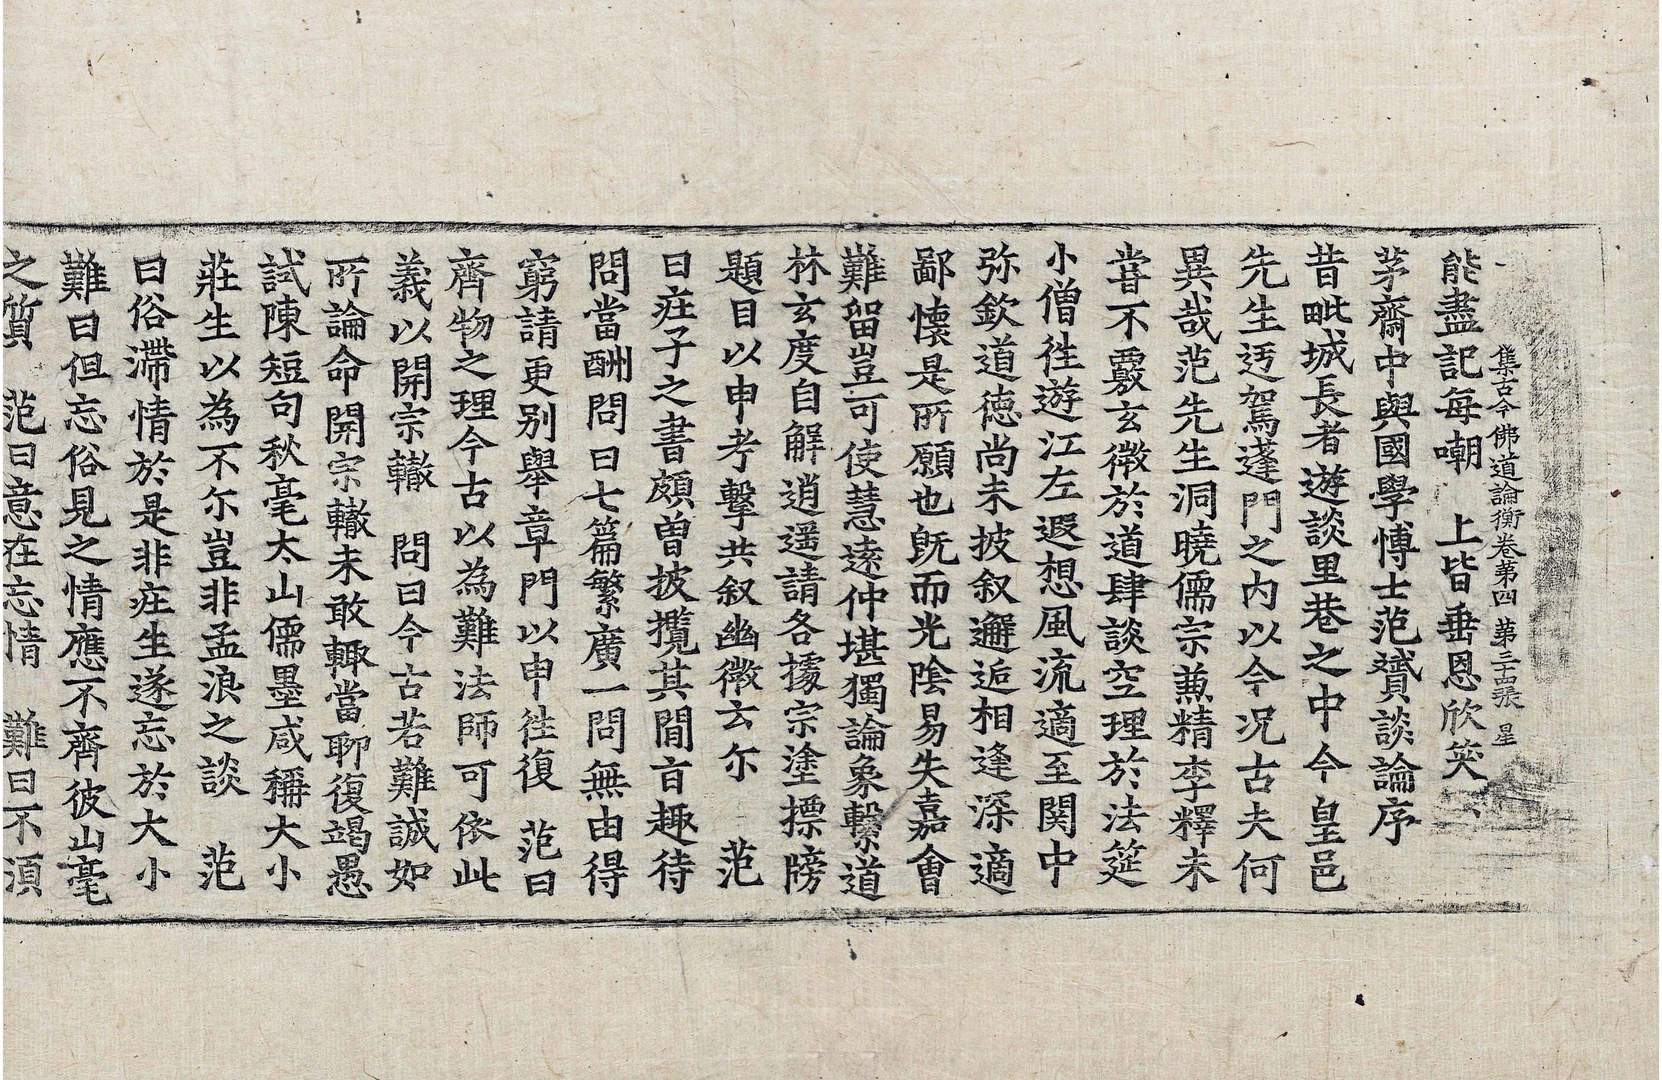 集古今佛道論衡卷第四 第三十四張 星
能盡記每嘲 上皆垂恩欣笑
茅齋中與國學博士范贇談論序
昔毗城長者遊談里巷之中今皇邑
先生迃駕蓬門之內以今况古夫何
異哉范先生洞曉儒宗兼精李釋未
甞不覈玄微於道肆談空理於法筵
小僧徃遊江左遐想風流適至関中
弥欽道徳尚未披叙邂逅相逢深適
鄙懐是所願也旣而光陰易失嘉會
難留豈可使慧遠仲堪獨論象繫道
林玄度自解逍遥請各據宗塗摽牓
題目以申考擊共叙幽微云尓 范
曰庄子之書頗曽披攬其間㫖趣待
問當酬問曰七篇繁廣一問無由得
窮請更别舉章門以申徃復 范曰
齊物之理今古以為難法師可依此
義以開宗轍 問曰今古若難誠如
所論命開宗轍未敢輙當聊復竭愚
試陳短句秋毫太山儒墨咸稱大小
莊生以為不尓豈非孟浪之談 范
曰俗滯情於是非庄生遂忘於大小
難曰但忘俗見之情應不齊彼山毫
之質 范曰意在忘情 難曰不湏